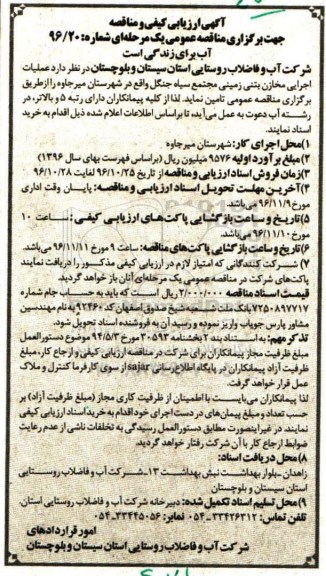 آگهی ارزیابی کیفی و مناقصه
جهت برگزاری مناقصه عمومی یک مرحله‌ای شماره: ۹۶/۲۰
آب برای زندگی است
شرکت آب و فاضلاب روستایی استان سیستان و بلوچستان در نظر دارد عملیات
اجرایی مخازن بتنی زمینی مجتمع سیاه جنگل واقع در شهرستان میرجاوه را از طریق
برگزاری مناقصه عمومی تامین نماید. لذا از کلیه پیمانکاران دارای رتبه ۵ و بالاتر، در
رشته آب دعوت به عمل می‌آید، تا براساس اطلاعات اعلام شده ذیل اقدام به خرید
اسناد نمایند.
۱) محل اجرای کار: شهرستان میرجاوه
۲) مبلغ برآورد اولیه ۹۵۷۶ میلیون ریال (براساس فهرست بهای سال ۱۳۹۶)
۳) زمان فروش اسناد ارزیابی و مناقصه از تاریخ ۹۶/۱۰/۲۵ لغایت ۹۶/۱۰/۲۸
۴) آخرین مهلت تحویل اسناد ارزیابی و مناقصه: پایان وقت اداری
مورخ ۹۶/۱۱/۹ می‌باشد.
۵) تاریخ و ساعت بازگشایی پاکت‌های ارزیابی کیفی: ساعت ۱۰
مورخ ۹۶/۱۱/۱۰ می‌باشد.
۶) تاریخ و ساعت بازگشایی پاکت‌های مناقصه: ساعت ۹ مورخ ۹۶/۱۱/۱۱ می‌باشد.
۷) شرکت کنندگانی که امتیاز لازم در ارزیابی کیفی مذکور را دریافت نمایند
پاکت‌های شرکت در مناقصه عمومی یک مرحله‌ای آنان باز خواهد گردید.
قیمت اسناد مناقصه ۲/۰۰۰/۰۰۰ ریال است که باید به حساب جام شماره
۷۲۵۰۸۹۷۷۱۷ بانک ملت شعبه شیخ صدوق اصفهان کد ۹۲۴۶۰ به نام مهندسین
مشاور پارس جویاب واریز نموده و رسید آن به فروشنده اسناد تحویل شود.
تذکر مهم: به استناد بند ۲ بخشنامه ۳۰۵۹۳ مورخ ۹۴/۵/۳ موضوع دستورالعمل
مبلغ ظرفیت مجاز پیمانکاران برای شرکت در مناقصه ارزیابی کیفی و ارجاع کار، مبلغ
ظرفیت آزاد پیمانکاران در پایگاه اطلاع‌رسانی sajar از سوی کارفرما کنترل و ملاک
عمل قرار خواهد گرفت.
لذا پیمانکاران می‌بایست با اطمینان از ظرفیت کاری مجاز (مبلغ ظرفیت آزاد) بر
حسب تعداد و مبلغ پیمان‌های در دست اجرای خود اقدام به خرید اسناد ارزیابی کیفی
نمایند. در غیر اینصورت مطابق دستورالعمل رسیدگی به تخلفات ناشی از عدم رعایت
ضوابط ارجاع کار با آن شرکت رفتار خواهد گردید.
۸) محل دریافت اسناد:
زاهدان - بلوار بهداشت نبش بهداشت ۱۳ - شرکت آب و فاضلاب روستایی
استان سیستان و بلوچستان
۹) محل تسلیم اسناد تکمیل شده: دبیرخانه شرکت آب و فاضلاب روستایی استان.
تلفن تماس: ۳۳۴۲۶۲۱۲-۰۵۴ نمابر: ۳۳۴۴۵۰۵۶-۰۵۴
امور قراردادهای
شرکت آب و فاضلاب روستایی استان سیستان و بلوچستان